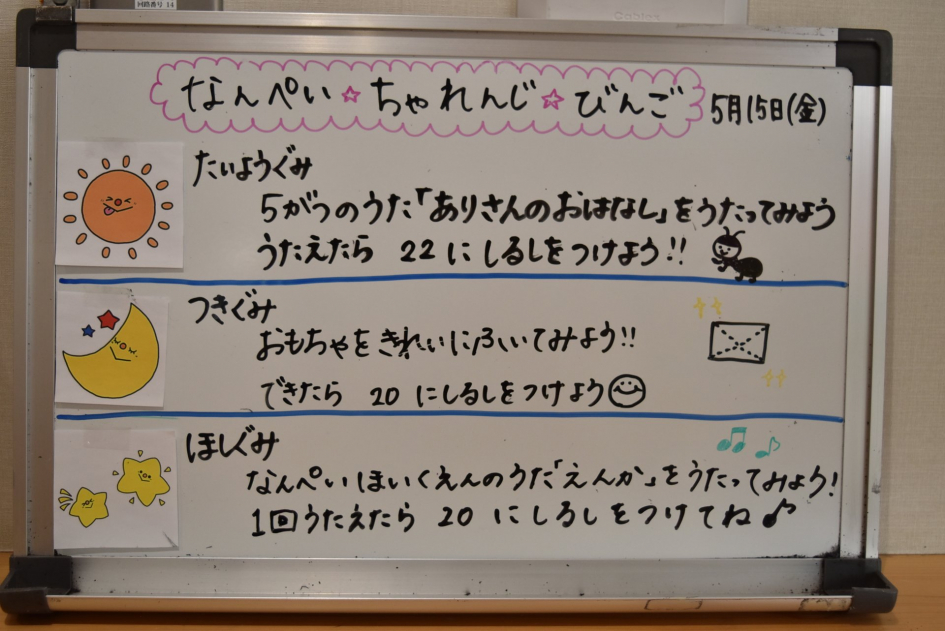 回路番号 14
なんぺい☆ちゃれんじ☆びんご 5月15日(金)
たいようぐみ
5がつのうた「ありさんのおはなし」をうたってみよう
うたえたら 22 に しるしをつけよう!!
つきぐみ
おもちゃをきれいにふいてみよう!!
できたら 20 にしるしをつけよう
ほしぐみ
なんぺいほいくえんのうた「えんか」をうたってみよう!
1回うたえたら 20 にしるしをつけてね♪